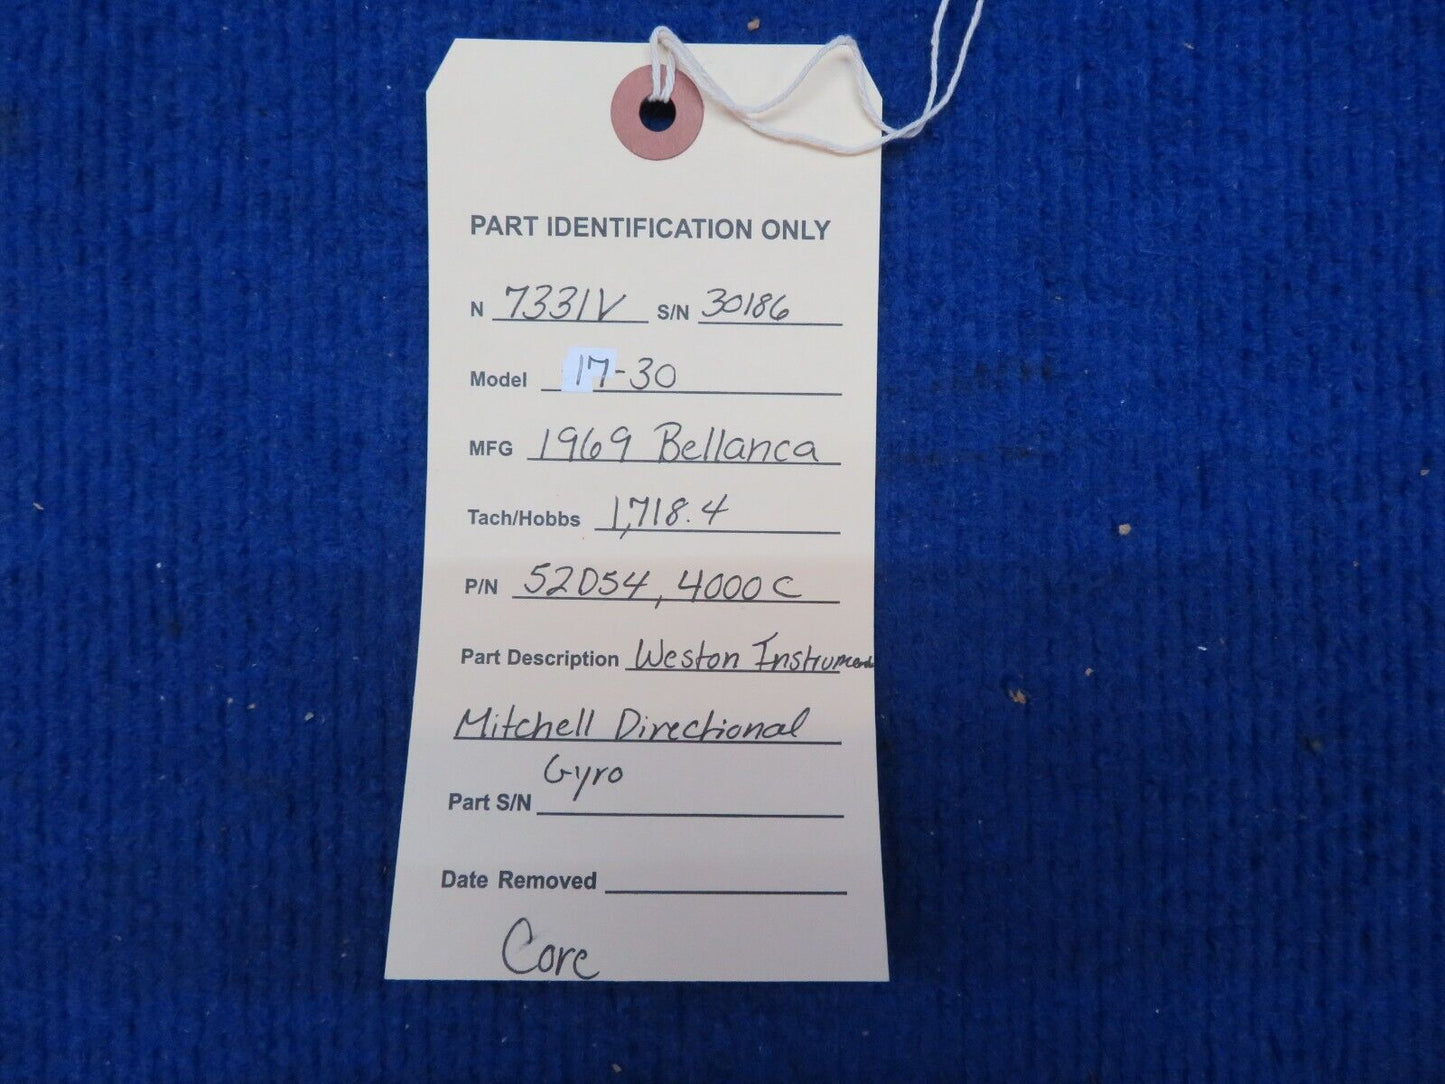 PART IDENTIFICATION ONLY
N 7331V S/N 30186
Model 17-30
MFG 1969 Bellanca
Tach/Hobbs 1,718.4
P/N 52D54, 4000C
Part Description Weston Instrument
Mitchell Directional
Gyro
Part S/N
Date Removed
Core